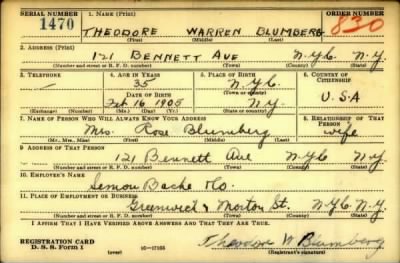 SERIAL NUMBER
1. NAME (Print)
ORDER NUMBER
1470
THEODORE WARREN BLUMBERG
830
(First) (Middle) (Last)
2. ADDRESS (Print)
121 BENNETT AVE N.Y.C. N.Y.
(Number and street or R. F. D. number) (Town) (County) (State)
3. TELEPHONE
4. AGE IN YEARS
5. PLACE OF BIRTH
6. COUNTRY OF CITIZENSHIP
35
N.Y.C.
DATE OF BIRTH
(Town or county)
Feb 16 1905
N.Y.
U.S.A
(Exchange) (Number) (Mo.) (Day) (Yr.) (State or country)
7. NAME OF PERSON WHO WILL ALWAYS KNOW YOUR ADDRESS
8. RELATIONSHIP OF THAT PERSON
Mrs. Rose Blumberg wife
(Mr., Mrs., Miss) (First) (Middle) (Last)
9. ADDRESS OF THAT PERSON
121 Bennett Ave N.Y.C N.Y.
(Number and street or R. F. D. number) (Town) (County) (State)
10. EMPLOYER'S NAME
Semon Bache Co.
11. PLACE OF EMPLOYMENT OR BUSINESS
Greenwich & Morton St. N.Y.C. N.Y.
(Number and street or R. F. D. number) (Town) (County) (State)
I AFFIRM THAT I HAVE VERIFIED ABOVE ANSWERS AND THAT THEY ARE TRUE.
REGISTRATION CARD
D. S. S. Form 1
16—17105
Theodore W Blumberg
(Registrant's signature)